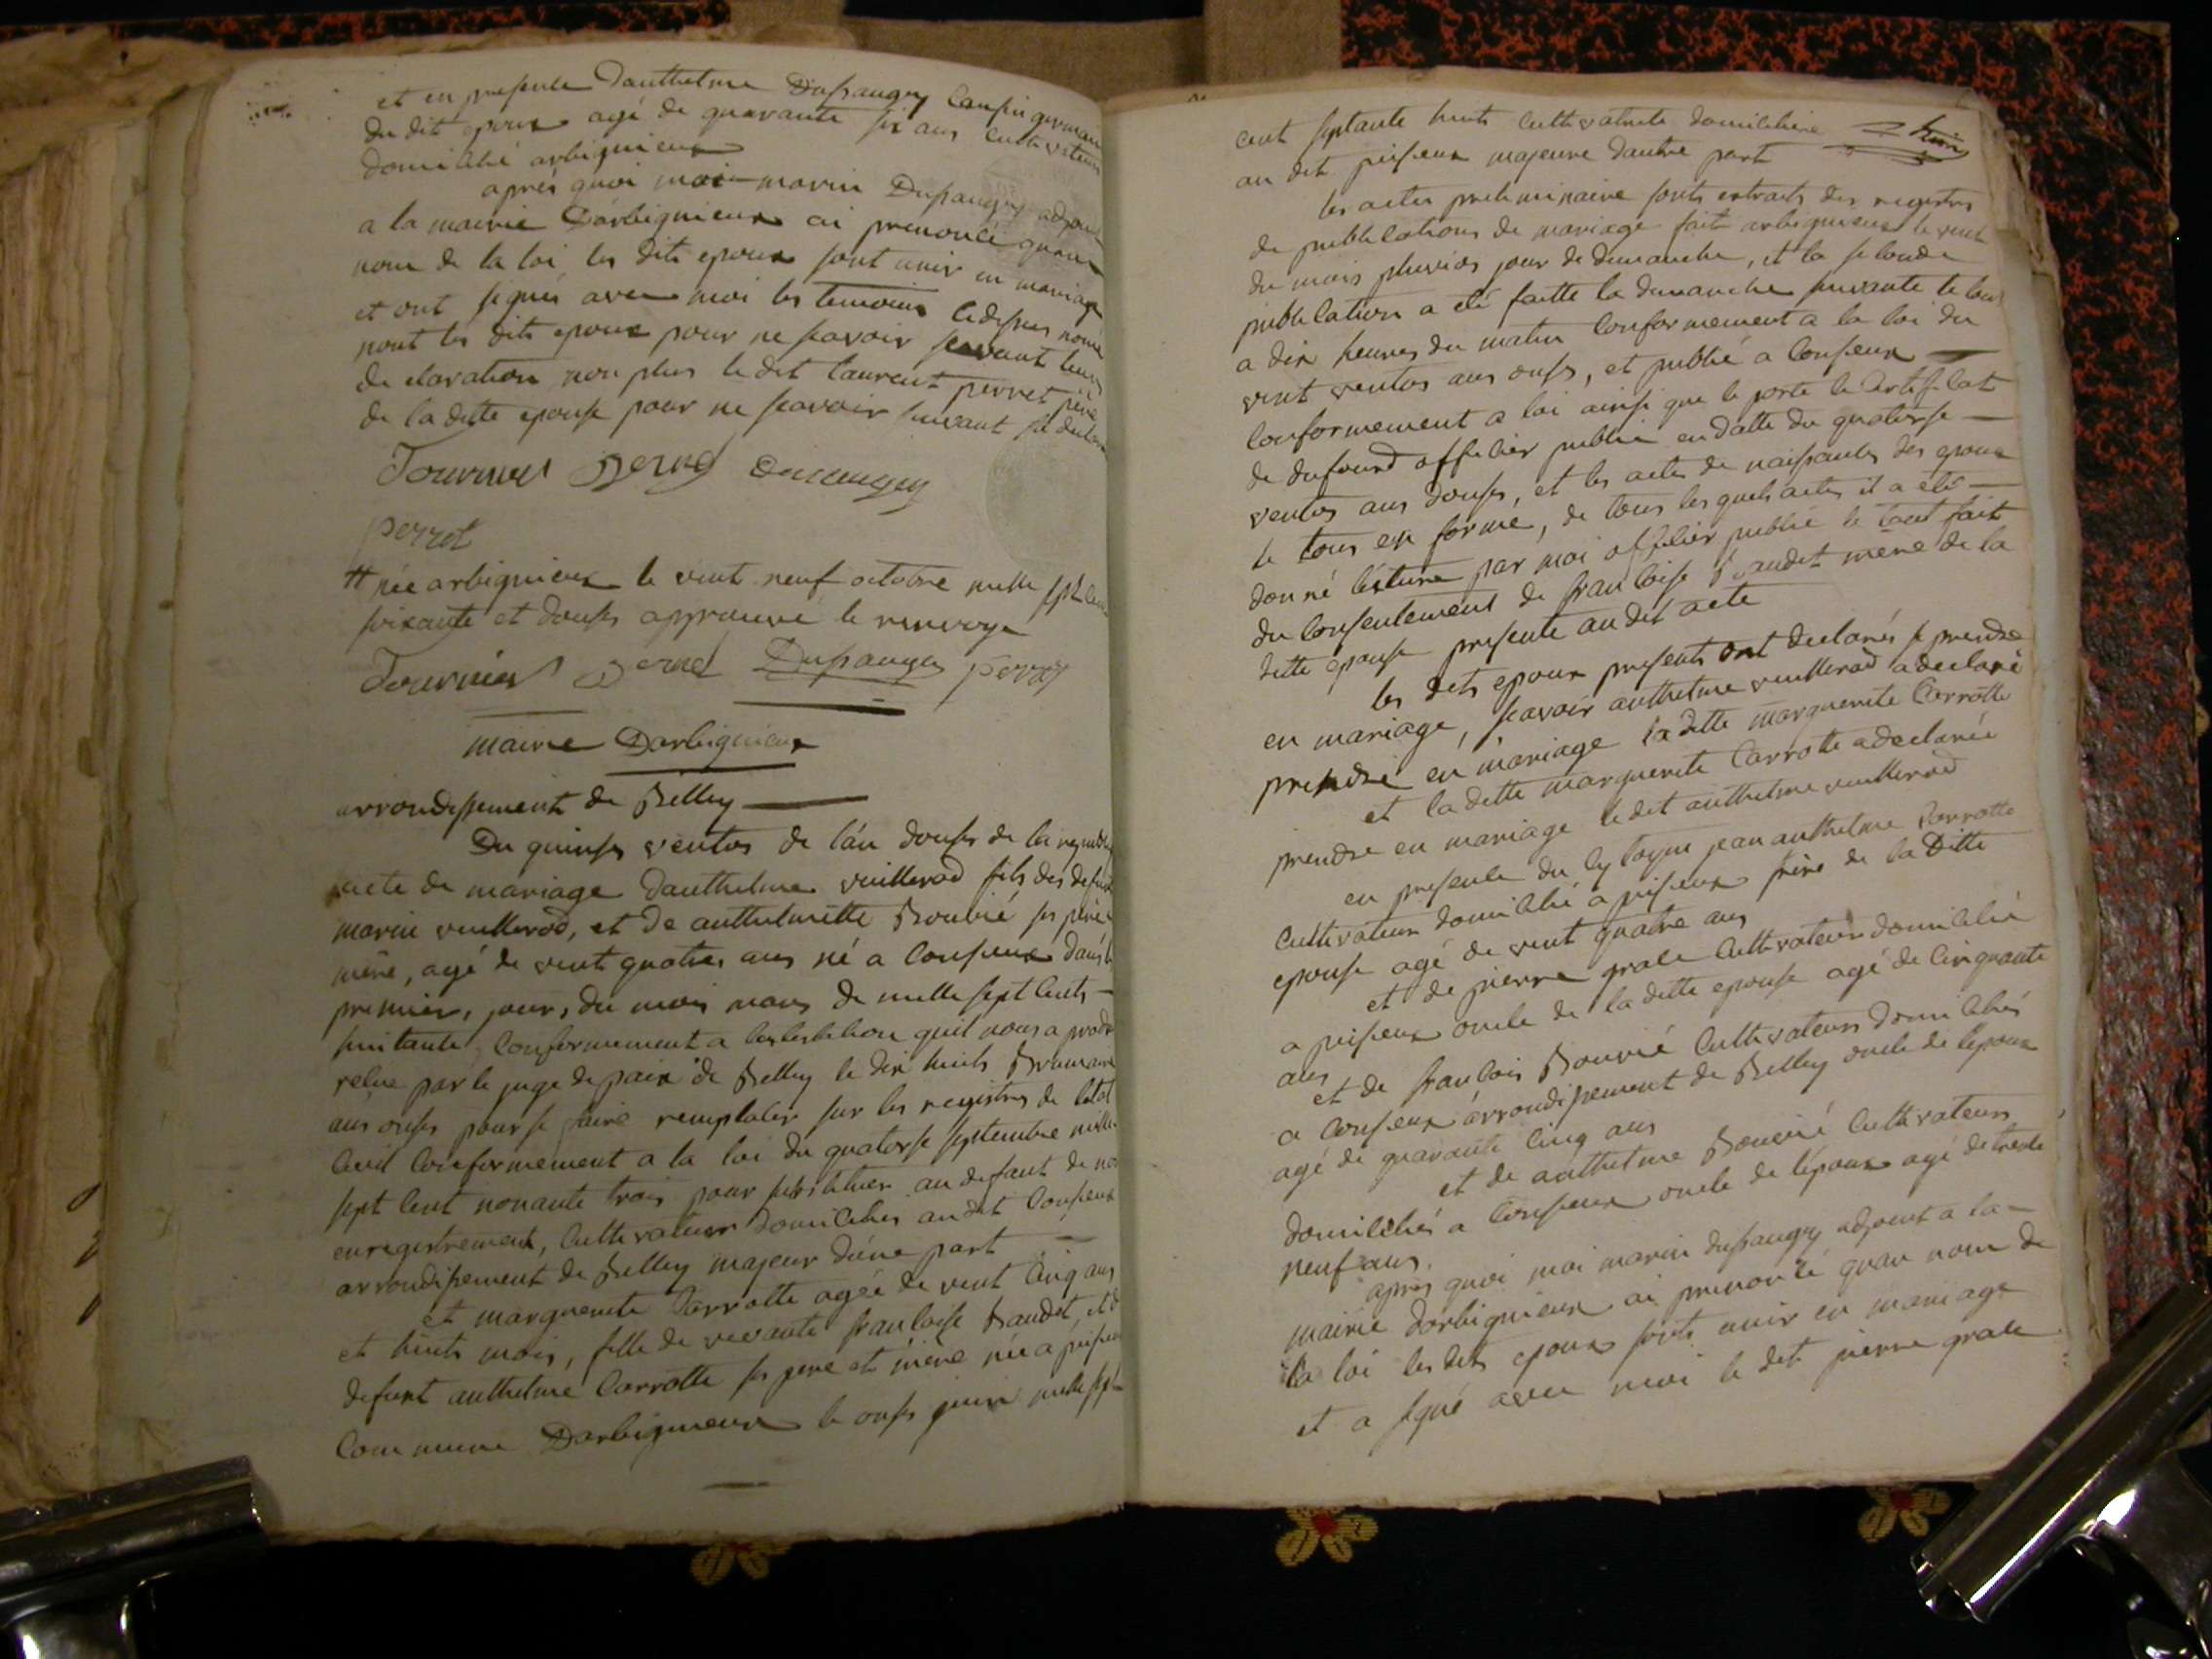 et en presence danthelme Dupaugey Cousin germain
du dit epoux agé de quarante six ans cultivateur
domicilié arbignieux
après quoi moi marin Dupaugey adjoint
a la mairie Darbignieux ai prenoncé quau
nom de la loi les dits epoux sont unir en mariage
et ont signés avec moi les temoins cidessus nomé
nont les dits epoux pour ne scavoir suivant leurs
declaration non plus le dit laurent perret père
de la ditte epouse pour ne scavoir suivant sa declara
Tournier Dupaugey
perret
# née arbignieux le vent neuf octobre mille sept cent
soixante et douses approuvé le renvoye
Tournier Dupaugey perret
mairie Darbignieux
arrondissement de Belley
Du quinse ventos de lan douses de la republi
acte de mariage danthelme vuillerod fils des defunt
marin vuillerod, et de anthelmette Bouvié ses père
mère, agé de vent quatres ans né a Consieux dans le
premier, jour, du mois mars de mille sept cents
huitante, Conformement a latestation quil nous a produ
relue par le juge de paix de Belley le dix huits Brumaire
ans onses pour se faire remplacer sur les registres de letat
Civil Conformement a la loi du quatorse septembre mille
sept Cent nonante trois pour substituer au defaut de nos
enregistrement, Cultivateur domicilies audit Consieux
arrondissement de Belley majeur dúne part
et marguerite Carrotte agée de vent Cinq ans
et huits mois, fille de vivante francoise Baudet, et de
defunt anthelme Carrotte ses pere et mère née a peisieux
Commune Darbignieux le onses juin mille sept
cent septante huits Cultivatrite domiciliée
au dit peisieux majeure dautre part
les actes preliminaire sonts extraits des registres
de publications de mariage fait arbignieux le vent
du mois pluvios jour de dimanche, et la seconde
publication a été faitte le dimanche suivante le tous
a dix heures du matin Conformement a la loi du
vent ventos ans onses, et publié a Consieux
Conformement a loi ainsi que le porte le Certificat
de dufourd officier public en datte du quatorse
ventos ans douses, et les actes de naissantes des epoux
le tous en formé, de tous les quels actes il a été
donné lécture par moi officier public le tout fait
du Consentement de francoise Baudet mère de la
ditte épouse presente au dit acte
les dits epoux presents ont declarés se prendre
en mariage, scavoir anthelme vuillerod a declaré
prendre en mariage la ditte marguerite Carrotte
et la ditte marguerite Carrotte a declarée
prendre en mariage le dit anthelme vuillerod
en presence du Cytoyen jean anthelme Carrotte
Cultivateur domicilié a peisieux frère de la Ditte
epouse agé de vent quatre ans
et de pierre grale Cultivateur domicilié
a peisieux oncle de la ditte epouse agé de Cinquante
ans
et de francois Bouvié Cultivateurs domiciliés
a Consieux arrondissement de Belley oncle de lépoux
agé de quarante Cinq ans
et de anthelme Bouvié Cultivateurs
domiciliés a Consieux oncle de lépoux agé de trente
neuf ans
après quoi moi marin dupaugey adjoint a la
mairie darbignieux ai prenoncé quau nom de
la loi les dits epoux sonts unir en mariage
et a signé avec moi le dit pierre grale